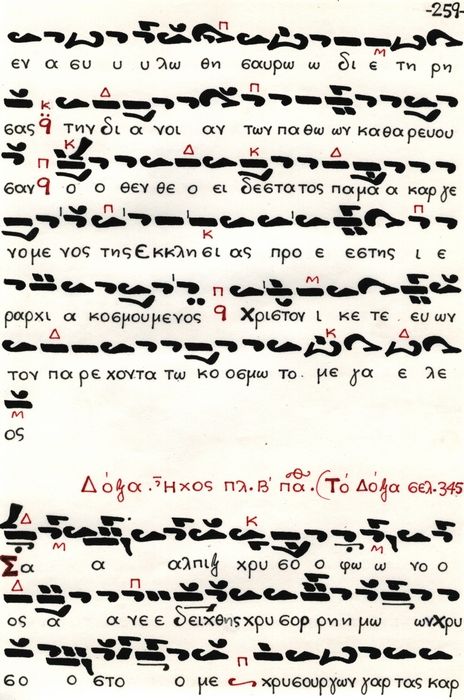 -259-
εν α συ υ υ λω θη σαυρω ω δι ε τη ρη
σας την δι α νοι αν των πα θω ων κα θα ρευου
σαν ο ο θεν θε ο ει δεστα τος πα μα α καρ γε
νο με νος της Εκκλη σι ας προ ε εστης ι ε
ραρχι α κοσμουμενος Χριστον ι κε τε ευ ων
τον πα ρε χοντα τω κο οσμω το με γα ε λε
ος
Δόξα. Ἦχος πλ. Β' πα. (Τό Δόξα σελ. 345
Σα α αλπιγξ χρυ σο ο φω ω νο ο
ος α α νε ε δειχθης χρυ σορ ρη η μω ων χρυ
σο ο στο ο με χρυσουργων γαρ τας καρ